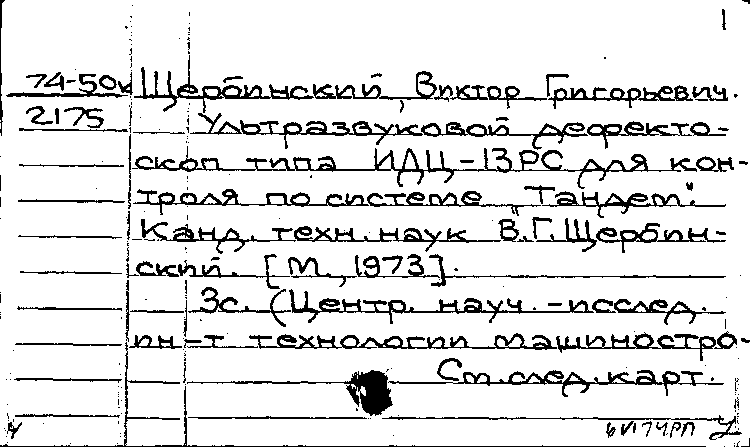 1
74-50к Щербинский, Виктор Григорьевич.
2175 Ультразвуковой дефекто-
скоп типа ИДЦ-13РС для кон-
троля по системе „Тандем".
Канд. техн. наук В.Г.Щербин-
ский. [М., 1973].
3с. (Центр. науч.-исслед.
ин-т технологии машиностро-
См.след.карт.
6 VI 74 РП